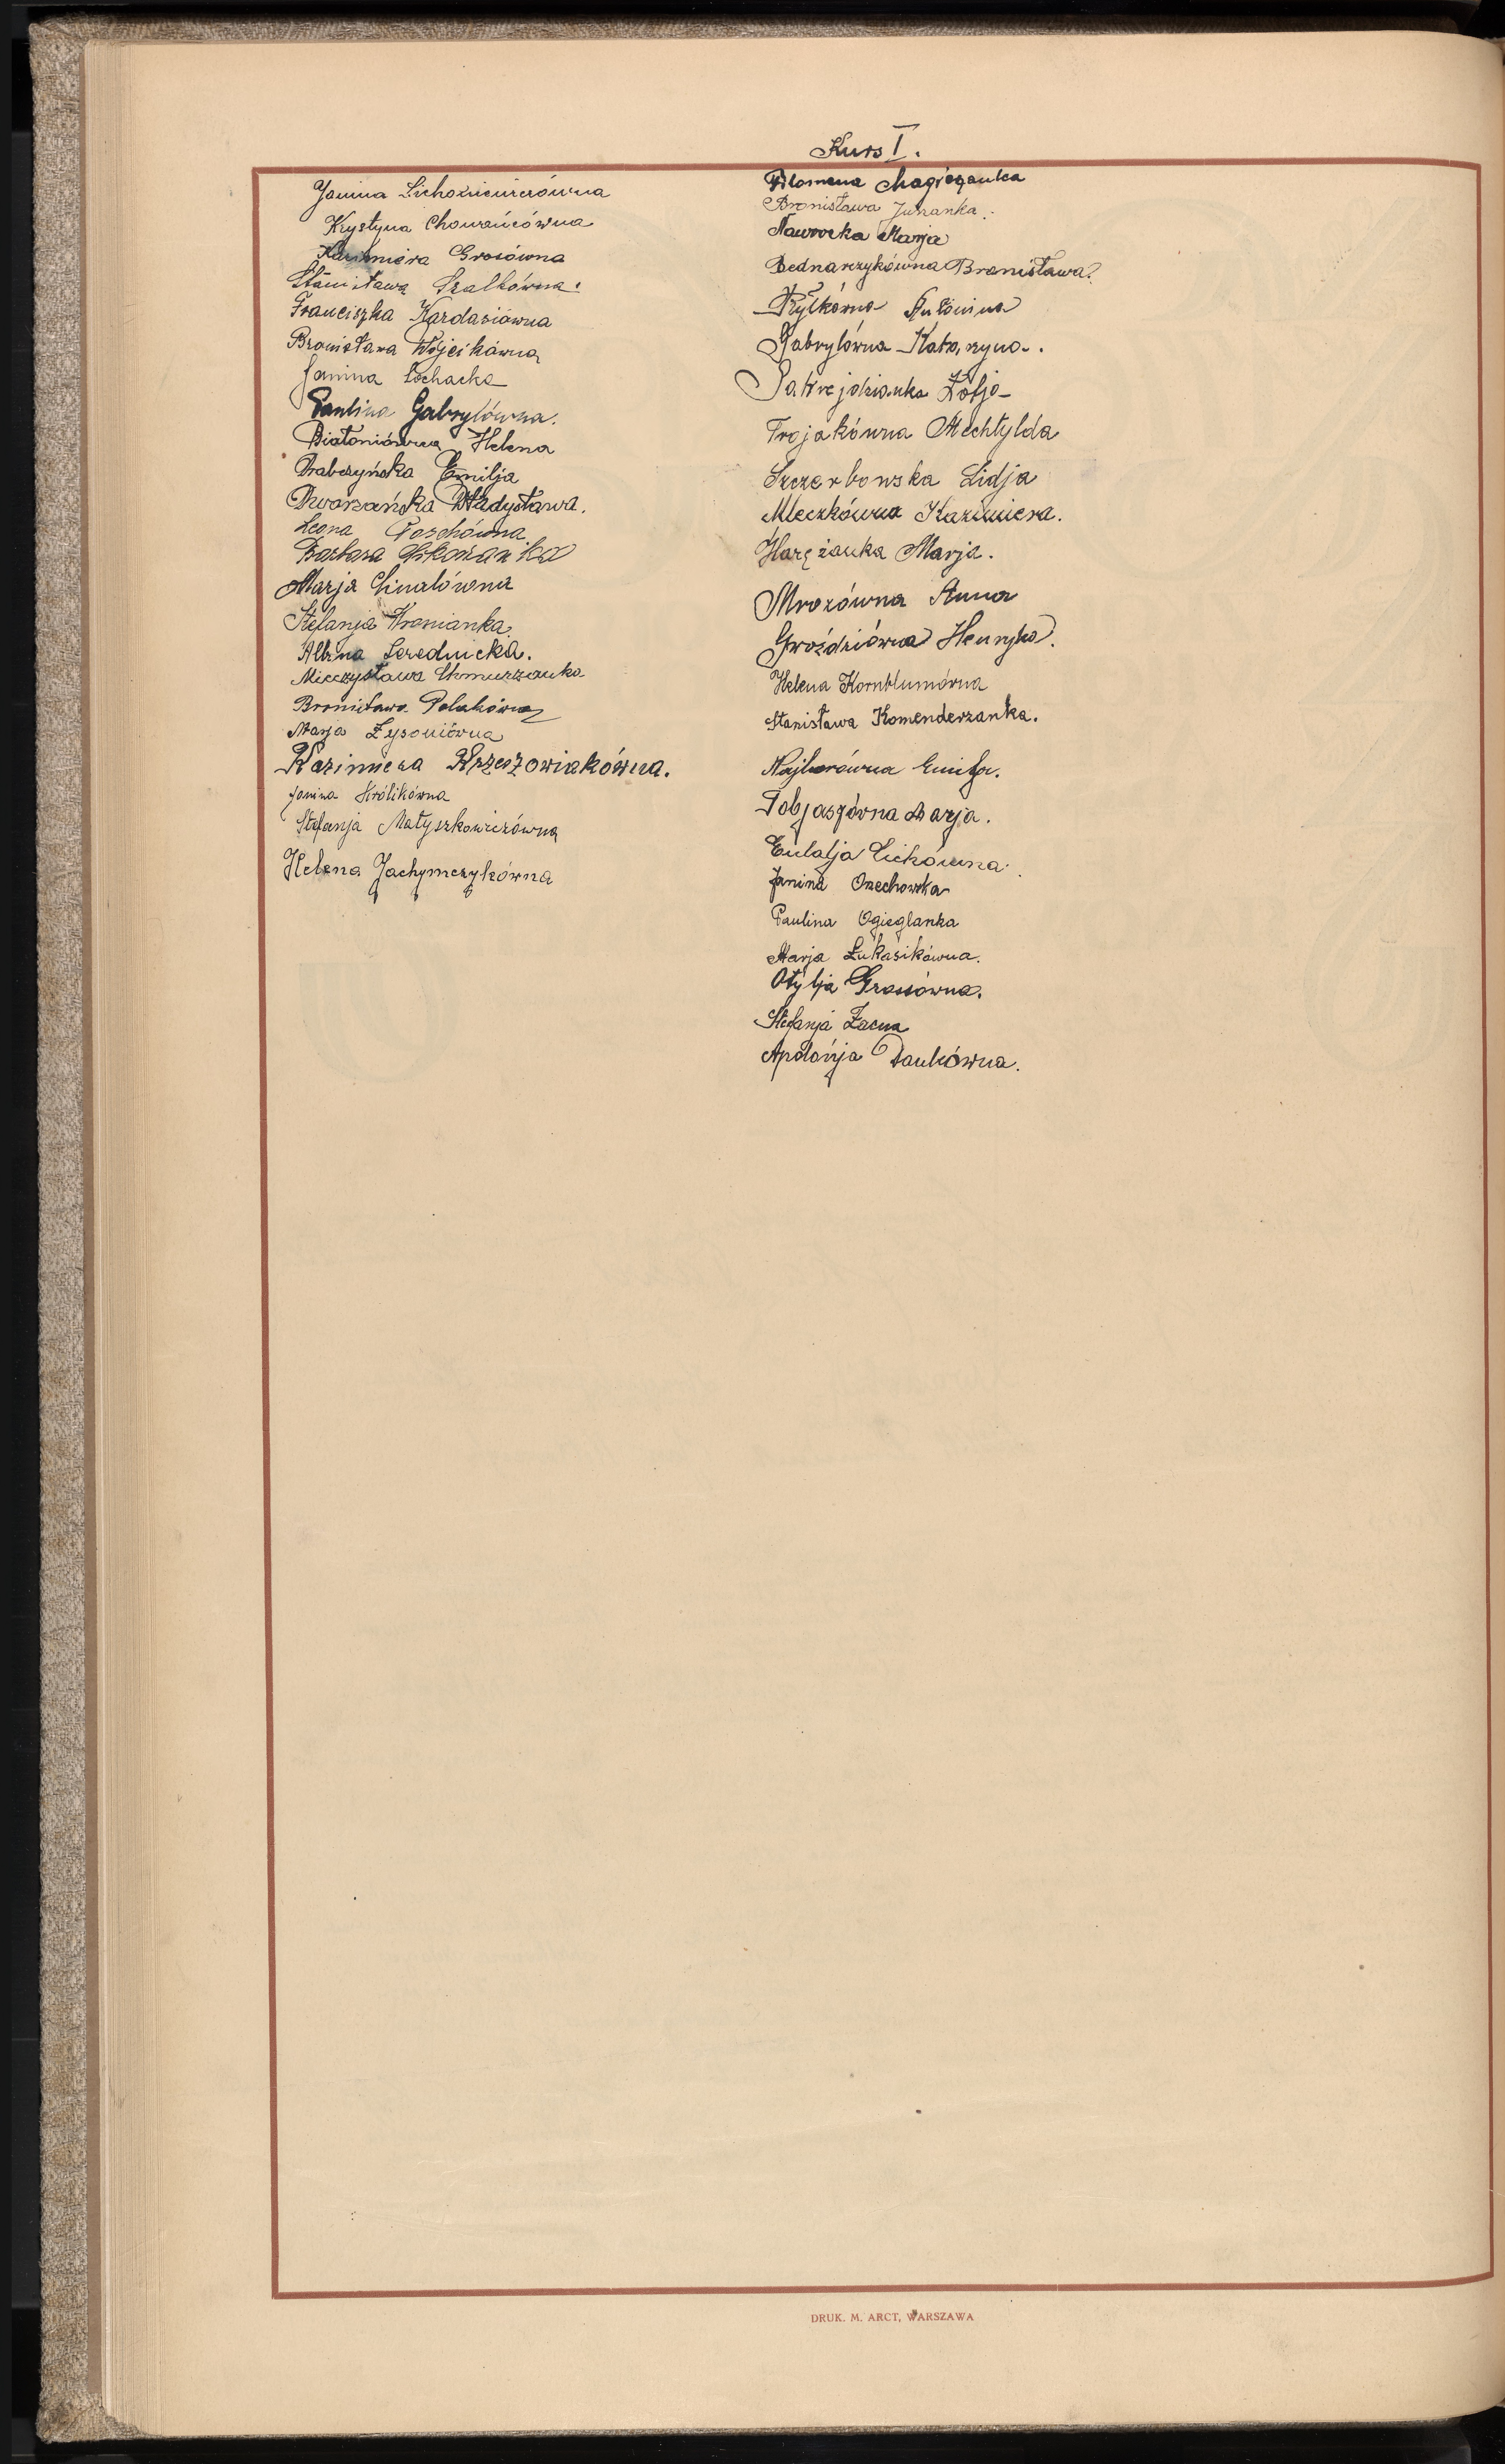 Kurs I.
Janina Lichoniewiczówna
Krystyna Chowańcówna
Kazimiera Grosówna
Stanisława Szalkówna.
Franciszka Kardasiówna
Bronisława Wójcikówna
Janina Łochacka
Paulina Gabrylówna.
Białoniówna Helena
Drabczyńska Emilja
Dworzańska Władysława.
Leona Poschówna
Barbara
Marja Chwałówna
Stefanja Wronianka
Albina Serednicka.
Mieczysława Chmurzanka
Bronisława Polakówna
Marja Łysoniówna
Kazimiera Krzeszowiakówna.
Janina Królikówna
Stefanja Matyszkowiczówna
Helena Jachymczykówna
Filomena Magierzanka
Bronisława Juhanka.
Nawrocka Marja
Bednarczykówna Bronisława.
Antonina
Gabrylówna Katarzyna.
Zofja
Trojakówna Mechtylda
Szczerbowska Lidja
Mleczkówna Kazimiera.
Harężanka Marja.
Mrozówna Anna
Gwoździówna Henryka.
Helena Kornblumówna
Stanisława Komenderzanka.
Najborówna Emilja.
Tobjaszówna Marja.
Eulalja Cichówna.
Janina Orzechowska
Paulina Ogieglanka
Marja Łukasikówna.
Otylja Grossówna.
Stefanja Zacna
Apolonja Pankówna.
DRUK. M. ARCT, WARSZAWA